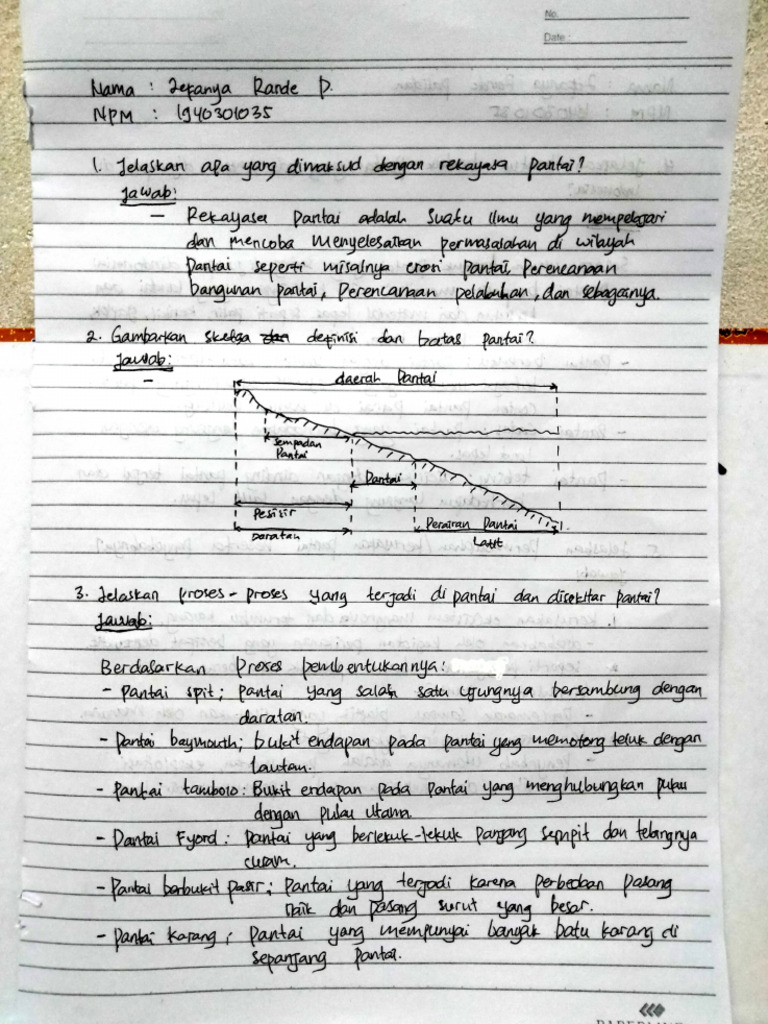 No.
Date :
Nama : Zefanya Rande P.
NPM : 1940301035
1. Jelaskan apa yang dimaksud dengan rekayasa pantai?
Jawab:
- Rekayasa pantai adalah suatu ilmu yang mempelajari
dan mencoba menyelesaikan permasalahan di wilayah
pantai seperti misalnya erosi pantai, perencanaan
bangunan pantai, perencanaan pelabuhan, dan sebagainya.
2. Gambarkan sketsa definisi dan batas pantai?
Jawab:
-
daerah pantai
sempadan
Pantai
Pantai
Pesisir
Perairan Pantai
Daratan
Laut
3. Jelaskan proses-proses yang terjadi di pantai dan disekitar pantai?
Jawab:
Berdasarkan proses pembentukannya:
- Pantai spit; pantai yang salah satu ujungnya bersambung dengan
daratan.
- Pantai baymouth; bukit endapan pada pantai yang memotong teluk dengan
lautan.
- Pantai tambolo: Bukit endapan pada pantai yang menghubungkan pulau
dengan pulau utama.
- Pantai Fyord: pantai yang berlekuk-lekuk panjang sempit dan tebingnya
curam.
- Pantai berbukit pasir; Pantai yang terjadi karena perbedaan pasang
naik dan pasang surut yang besar.
- Pantai Karang; pantai yang mempunyai banyak batu karang di
sepanjang pantai.